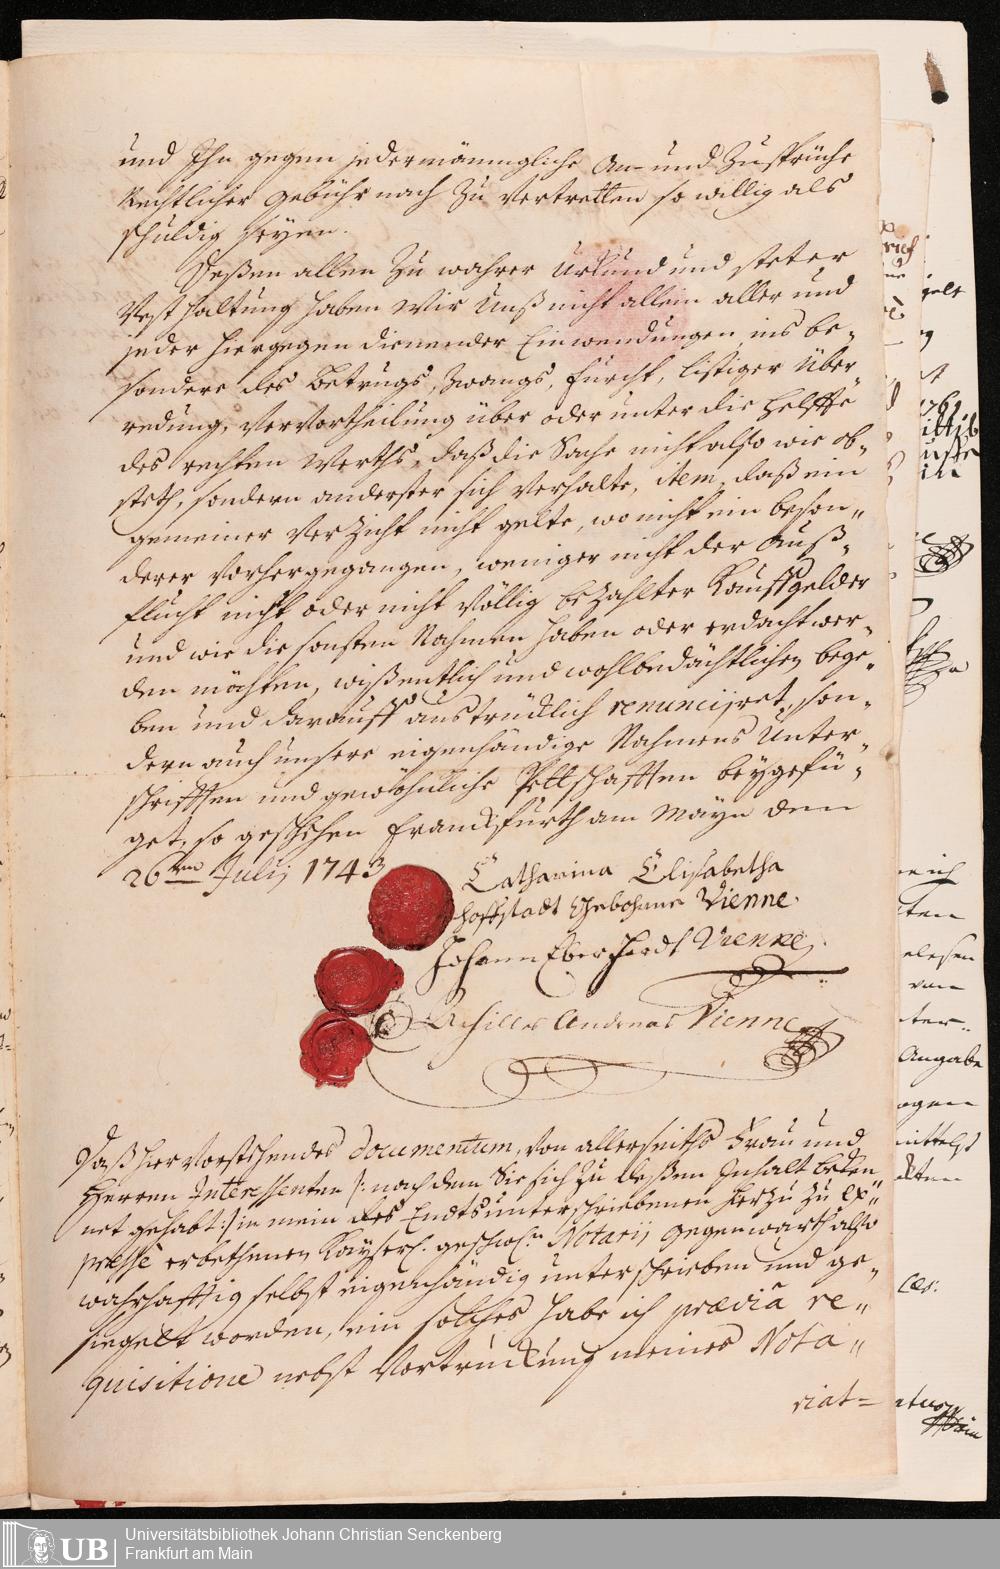 und Ihn gegen jedermänniglichs An- und Zusprüche
Rechtlicher gebühr nach zu vertretten so willig als
schuldig seyen.
Deßen allen zu wahrer Urkund und steter
Vest haltung haben Wir Unß nicht allein aller und
jeder hiergegen dienender Einwendungen, ins be-
sondere des betrugs, zwangs, furcht, listiger Über
redung, Vervortheilung über oder unter die Helffte
des rechten Werths, daß die Sache nicht also wie ob-
steth, sondern anderster sich verhalte, item, daß ein
gemeiner Verzicht nicht gelte, wo nicht ein beson-
derer vorhergegangen, weniger nicht der Auß-
flucht nicht oder nicht völlig bezahlter Kauffgelder
und wie die sonsten Nahmen haben oder erdacht wer-
den möchten, wißentlich und wohlbedächtlichen bege-
ben und darauff austrücklich renuncijret, son-
dern auch unsere eigenhändige Nahmens Unter-
schrifften und gewöhnliche Pettschafften beygefü-
get, so geschehen Franckfurth am Mayn den
26ten Julij 1743
Catharina Elisabetha
Hoffstadt Gebohrne Vienne.
Johann Eberhardt Vienne
Achilles Andreas Vienne
Daß hier vorstehendes documentum, von allerseiths Frau und
Herren Interessenten /: nach dem Sie sich zu deßen Inhalt beken
net gehabt :/ in mein des Endts unterschriebenen hierzu zu ex-
presse erbethenen Kayserl. geschw. Notarij gegenwarth also
wahrhafftig selbst eigenhändig unterschrieben und ge-
siegelt worden, ein solches habe ich prævia re-
quisitione nebst Vortruckung meines Nota-
riat-
Angabe
Universitätsbibliothek Johann Christian Senckenberg
Frankfurt am Main
UB